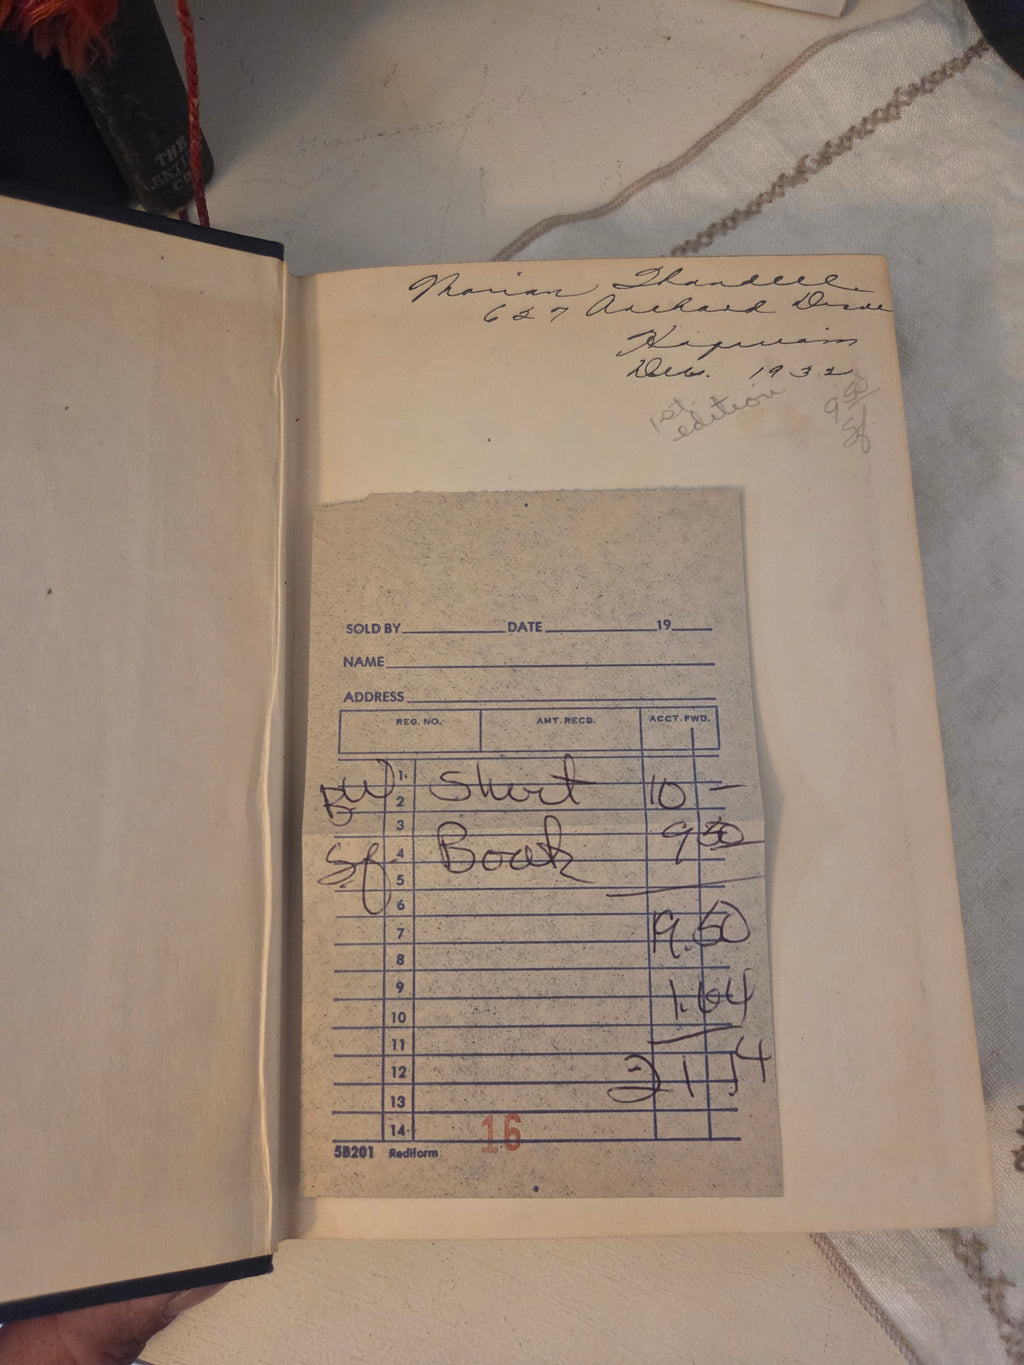 THE
CENTURY
CO
Marian
627 Orchard Drive
Dec. 1932
1st.
edition
9.50
Sf
SOLD BY DATE 19
NAME
ADDRESS
REG. NO. AMT. RECD. ACCT. FWD.
1 Skirt 10 -
2
3 9 50
Sf 4 Book
5
6
7 19.50
8
9 1.64
10
11
12 21.14
13
14
16
5B201 Rediform